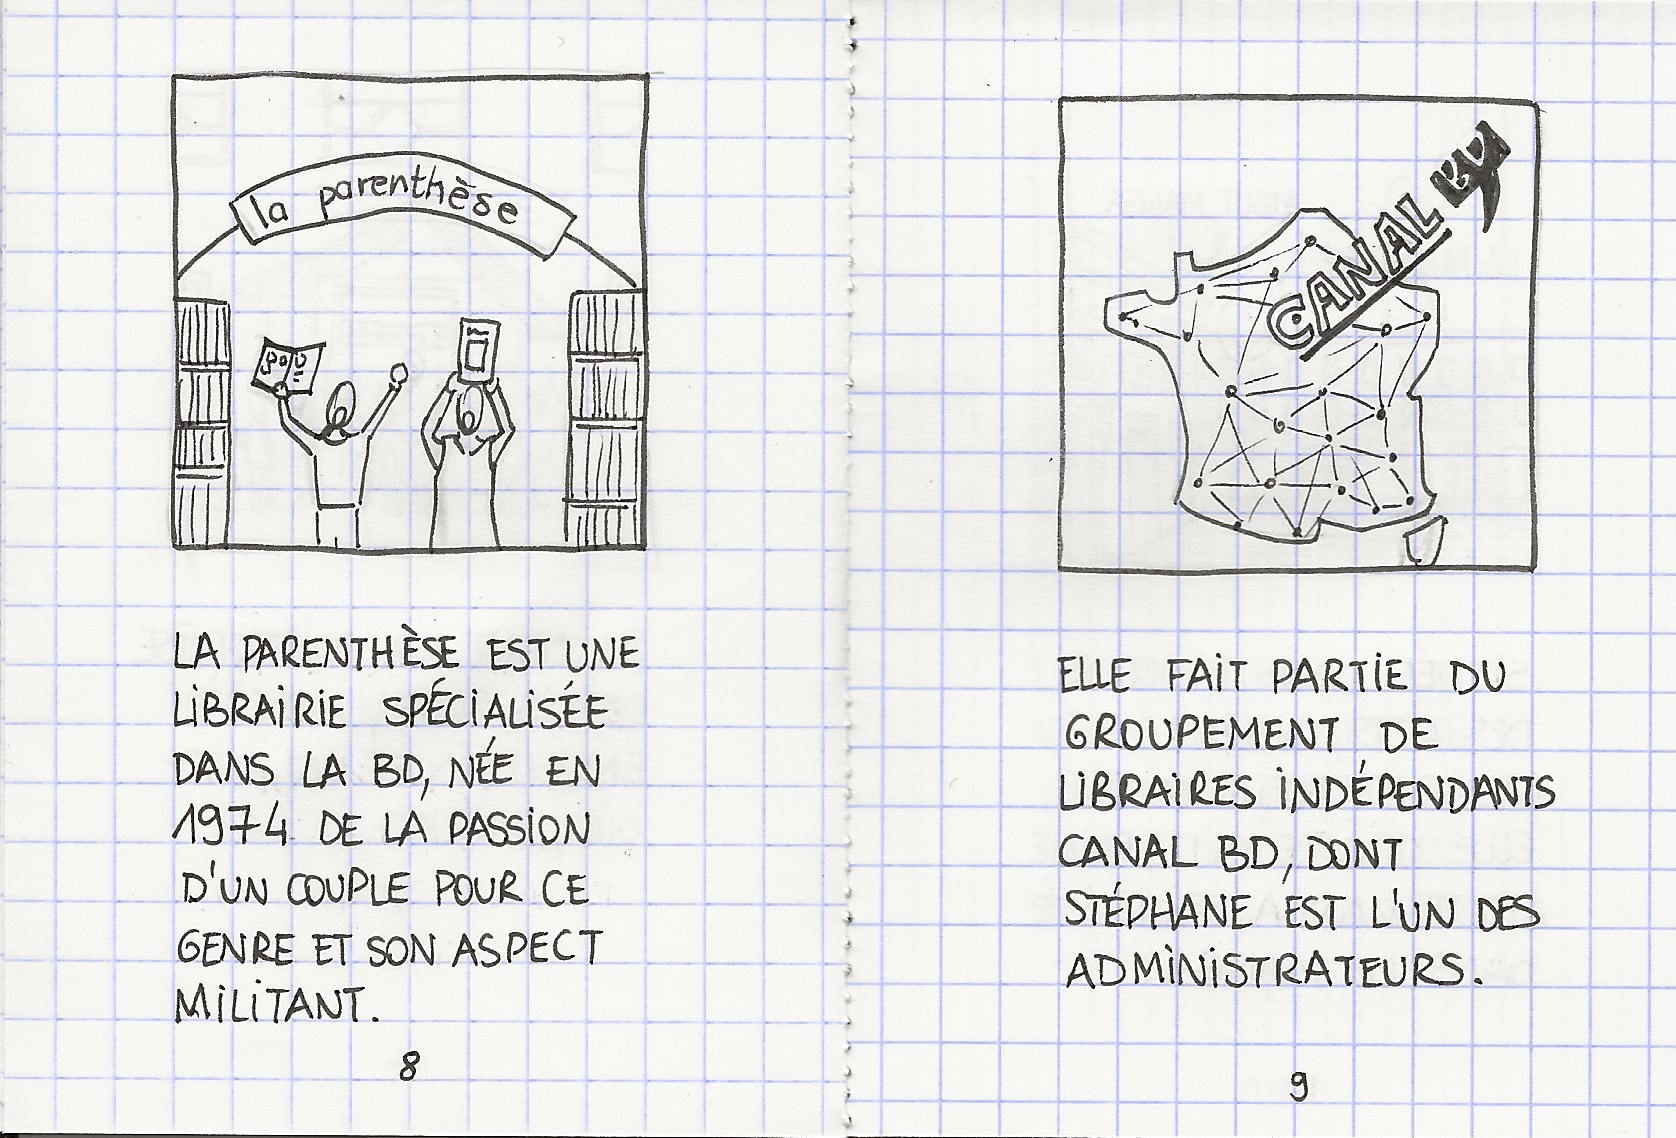 la parenthèse
LA PARENTHÈSE EST UNE
LIBRAIRIE SPÉCIALISÉE
DANS LA BD, NÉE EN
1974 DE LA PASSION
D'UN COUPLE POUR CE
GENRE ET SON ASPECT
MILITANT.
8
CANAL BD
ELLE FAIT PARTIE DU
GROUPEMENT DE
LIBRAIRES INDÉPENDANTS
CANAL BD, DONT
STÉPHANE EST L'UN DES
ADMINISTRATEURS.
9